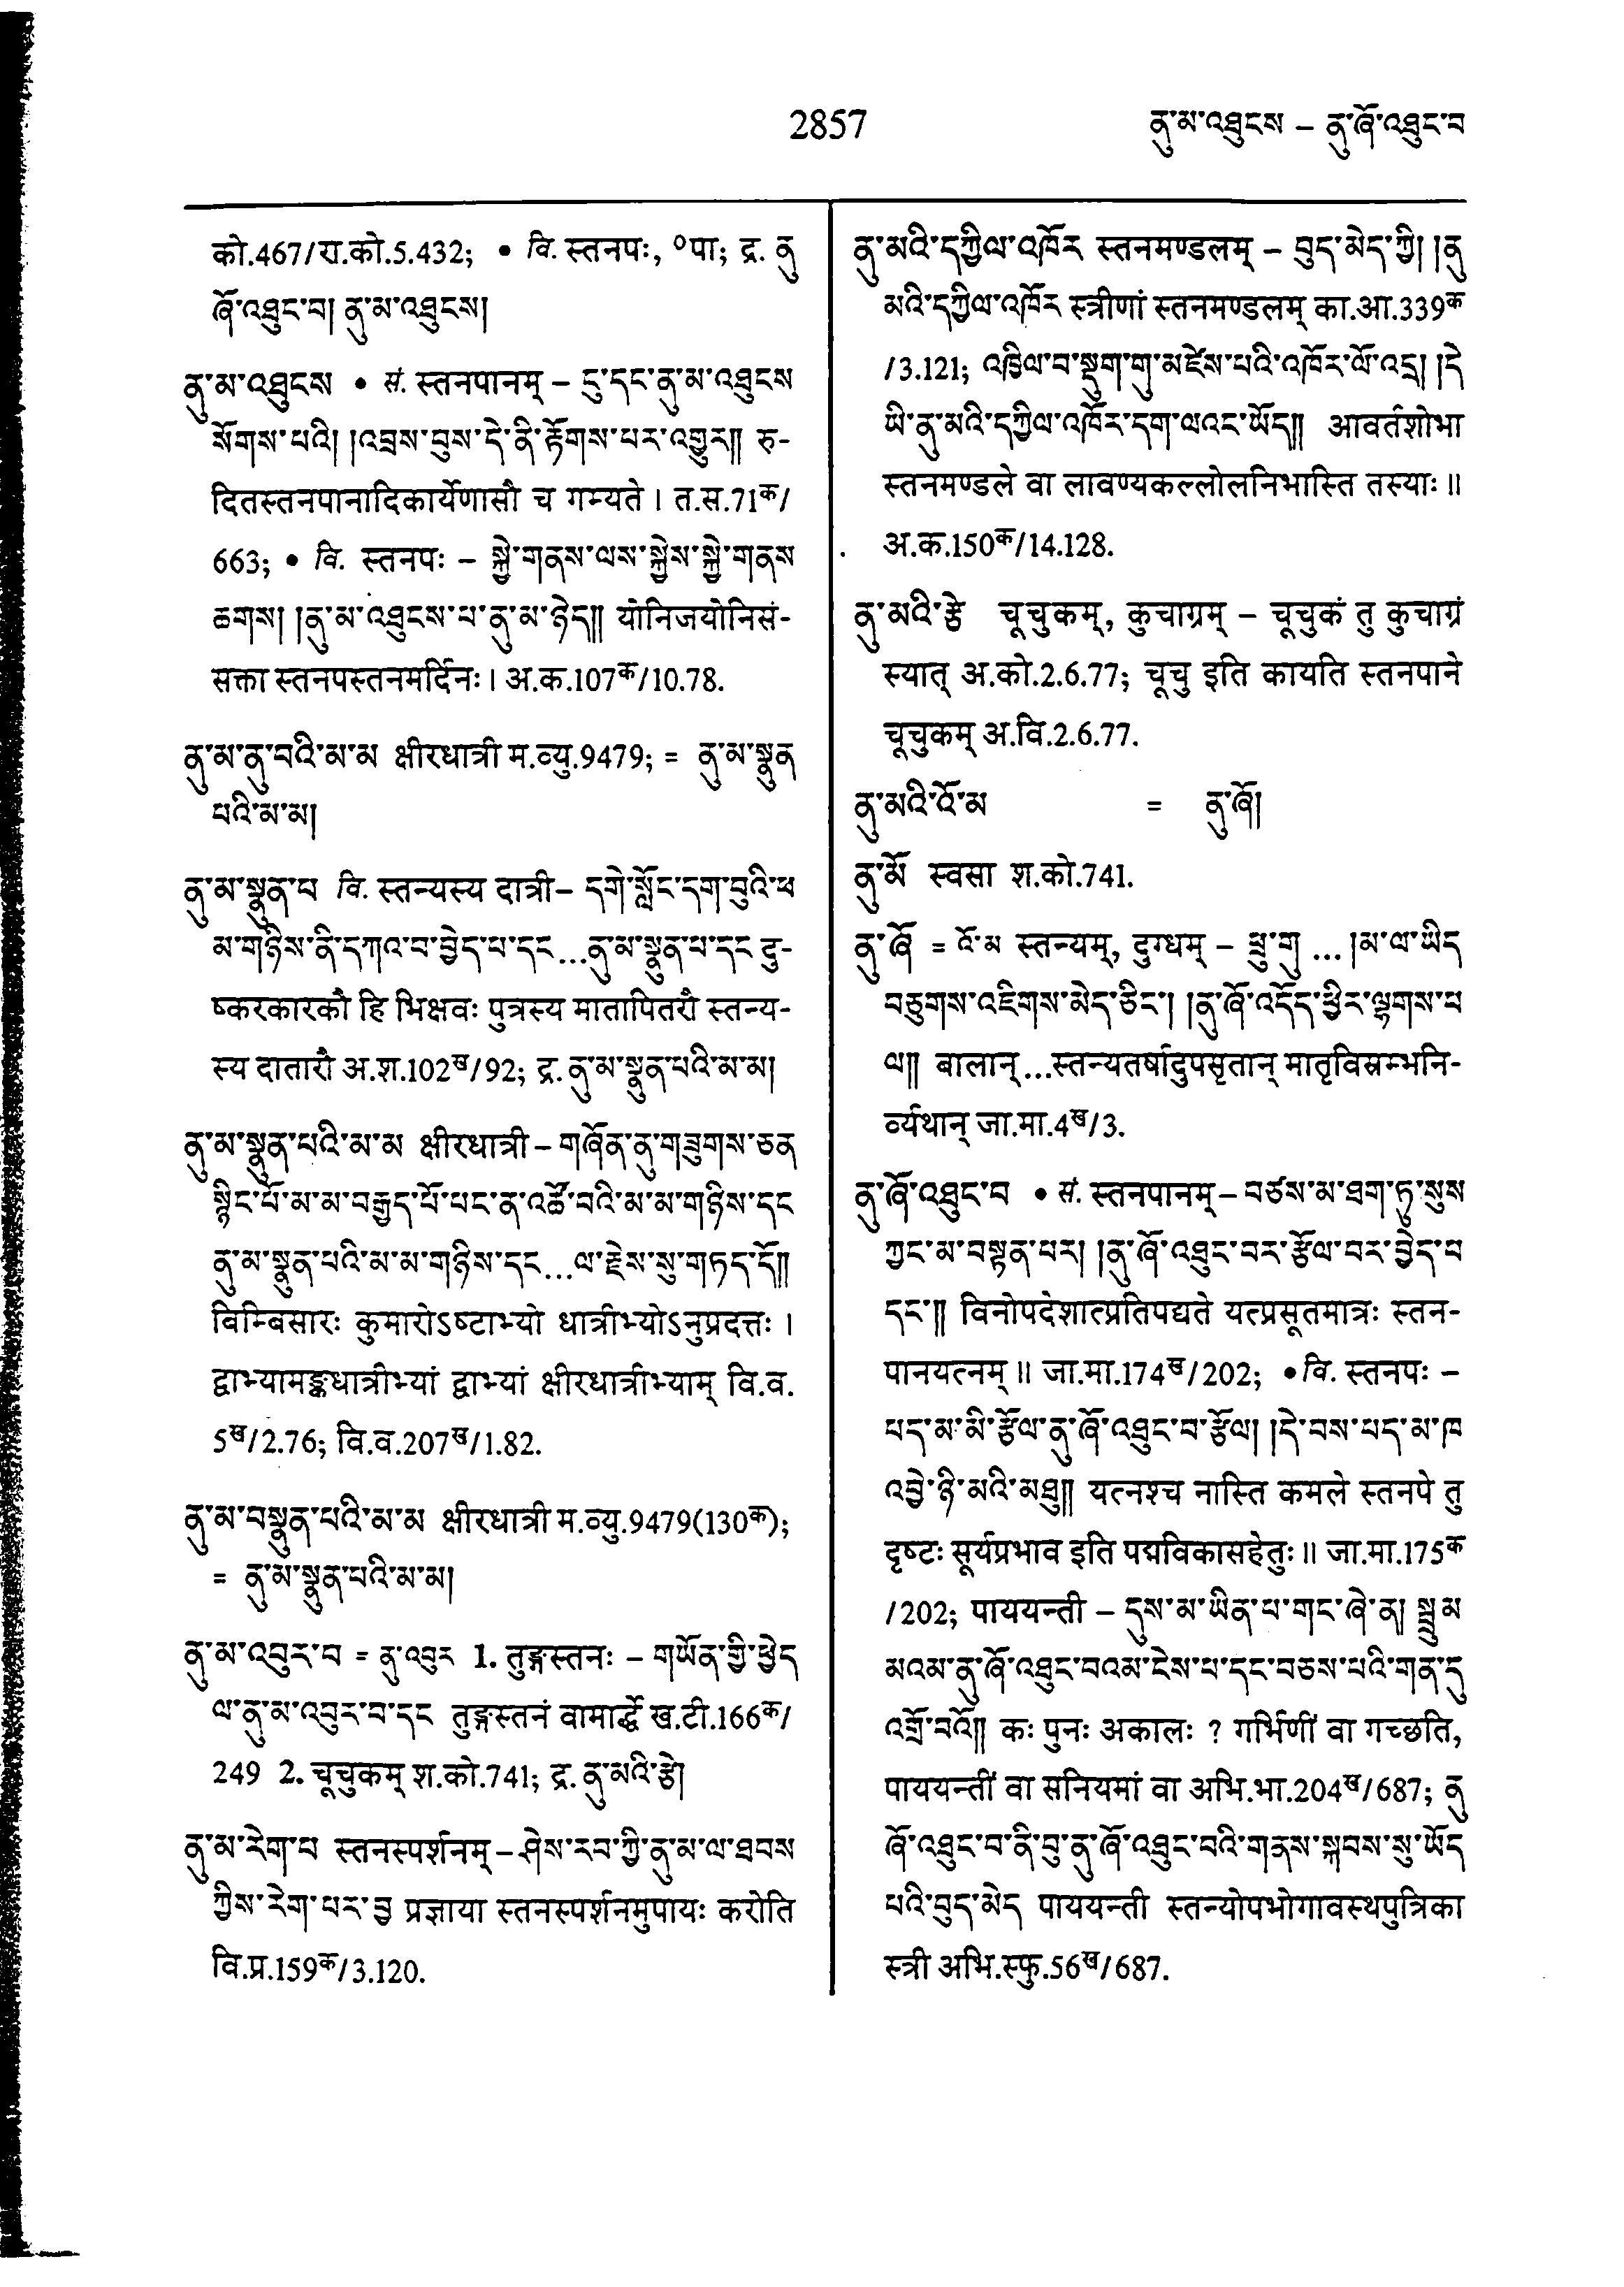 2857
ནུ་མ་འཐུངས – ནུ་ཞོ་འཐུང་བ
को.467/रा.को.5.432; • वि. स्तनपः, ॰पा; द्र. ནུ
ཞོ་འཐུང་བ། ནུ་མ་འཐུངས།
ནུ་མ་འཐུངས • सं. स्तनपानम् – ངུ་དང་ནུ་མ་འཐུངས
སོགས་པའི། །འབྲས་བུས་དེ་ནི་རྟོགས་པར་འགྱུར།། रु-
दितस्तनपानादिकार्येणासौ च गम्यते । त.स.71क/
663; • वि. स्तनपः – སྐྱེ་གནས་ལས་སྐྱེས་སྐྱེ་གནས
ཆགས། །ནུ་མ་འཐུངས་པ་ནུ་མ་ཉེད།། योनिजयोनिसं-
सक्ता स्तनपस्तनमर्दिनः । अ.क.107क/10.78.
ནུ་མ་ནུ་བའི་མ་མ क्षीरधात्री म.व्यु.9479; = ནུ་མ་སྣུན
པའི་མ་མ།
ནུ་མ་སྣུན་པ वि. स्तन्यस्य दात्री – དགེ་སློང་དག་བུའི་ཕ
མ་གཉིས་ནི་དཀའ་བ་བྱེད་པ་དང...ནུ་མ་སྣུན་པ་དང दु-
ष्करकारकौ हि भिक्षवः पुत्रस्य मातापितरौ स्तन्य-
स्य दातारौ अ.श.102ख/92; द्र. ནུ་མ་སྣུན་པའི་མ་མ།
ནུ་མ་སྣུན་པའི་མ་མ क्षीरधात्री – གཞོན་ནུ་གཟུགས་ཅན
སྙིང་པོ་མ་མ་བརྒྱད་པོ་པང་ན་འཚོ་བའི་མ་མ་གཉིས་དང
ནུ་མ་སྣུན་པའི་མ་མ་གཉིས་དང...ལ་རྗེས་སུ་གཏད་དོ།།
विम्बिसारः कुमारोऽष्टाभ्यो धात्रीभ्योऽनुप्रदत्तः ।
द्वाभ्यामङ्कधात्रीभ्यां द्वाभ्यां क्षीरधात्रीभ्याम् वि.व.
5ख/2.76; वि.व.207ख/1.82.
ནུ་མ་བསྣུན་པའི་མ་མ क्षीरधात्री म.व्यु.9479(130क);
= ནུ་མ་སྣུན་པའི་མ་མ།
ནུ་མ་འབུར་བ = ནུ་འབུར 1. तुङ्गस्तनः – གཡོན་གྱི་ཕྱེད
ལ་ནུ་མ་འབུར་བ་དང तुङ्गस्तनं वामार्द्धे ख.टी.166क/
249 2. चूचुकम् श.को.741; द्र. ནུ་མའི་རྩེ།
ནུ་མ་རེག་པ स्तनस्पर्शनम् – ཤེས་རབ་ཀྱི་ནུ་མ་ལ་ཐབས
ཀྱིས་རེག་པར་བྱ प्रज्ञाया स्तनस्पर्शनमुपायः करोति
वि.प्र.159क/3.120.
ནུ་མའི་དཀྱིལ་འཁོར स्तनमण्डलम् – བུད་མེད་ཀྱི། །ནུ
མའི་དཀྱིལ་འཁོར स्त्रीणां स्तनमण्डलम् का.आ.339क
/3.121; འཁྱིལ་བ་སྡུག་གུ་མཛེས་པའི་འཁོར་ལོ་འདྲ། །དེ
ཡི་ནུ་མའི་དཀྱིལ་འཁོར་དག་ལའང་ཡོད།། आवर्तशोभा
स्तनमण्डले वा लावण्यकल्लोलनिभास्ति तस्याः ॥
अ.क.150क/14.128.
ནུ་མའི་རྩེ चूचुकम्, कुचाग्रम् – चूचुकं तु कुचाग्रं
स्यात् अ.को.2.6.77; चूचु इति कायति स्तनपाने
चूचुकम् अ.वि.2.6.77.
ནུ་མའི་འོ་མ = ནུ་ཞོ།
ནུ་མོ स्वसा श.को.741.
ནུ་ཞོ = འོ་མ स्तन्यम्, दुग्धम् – ཕྲུ་གུ ... །མ་ལ་ཡིད
བཅུགས་འཇིགས་མེད་ཅིང་། །ནུ་ཞོ་འདོད་ཕྱིར་ལྷགས་པ
ལ།། बालान् ...स्तन्यतर्षादुपसृतान् मातृविस्रम्भनि-
र्व्यथान् जा.मा.4ख/3.
ནུ་ཞོ་འཐུང་བ • सं. स्तनपानम् – བཙས་མ་ཐག་ཏུ་སུས
ཀྱང་མ་བསྟན་པར། །ནུ་ཞོ་འཐུང་བར་རྩོལ་བར་བྱེད་པ
དང་།། विनोपदेशात्प्रतिपद्यते यत्प्रसूतमात्रः स्तन-
पानयत्नम् ॥ जा.मा.174ख/202; • वि. स्तनपः –
པད་མ་མི་རྩོལ་ནུ་ཞོ་འཐུང་བ་རྩོལ། །དེ་བས་པད་མ་ཁ
འབྱེ་ཉི་མའི་མཐུ།། यत्नश्च नास्ति कमले स्तनपे तु
दृष्टः सूर्यप्रभाव इति पद्मविकासहेतुः ॥ जा.मा.175क
/202; पाययन्ती – དུས་མ་ཡིན་པ་གང་ཞེ་ན། སྦྲུམ
མའམ་ནུ་ཞོ་འཐུང་བའམ་ངེས་པ་དང་བཅས་པའི་གན་དུ
འགྲོ་བའོ།། कः पुनः अकालः ? गर्भिणीं वा गच्छति,
पाययन्तीं वा सनियमां वा अभि.भा.204ख/687; ནུ
ཞོ་འཐུང་བ་ནི་བུ་ནུ་ཞོ་འཐུང་བའི་གནས་སྐབས་སུ་ཡོད
པའི་བུད་མེད पाययन्ती स्तन्योपभोगावस्थपुत्रिका
स्त्री अभि.स्फु.56ख/687.